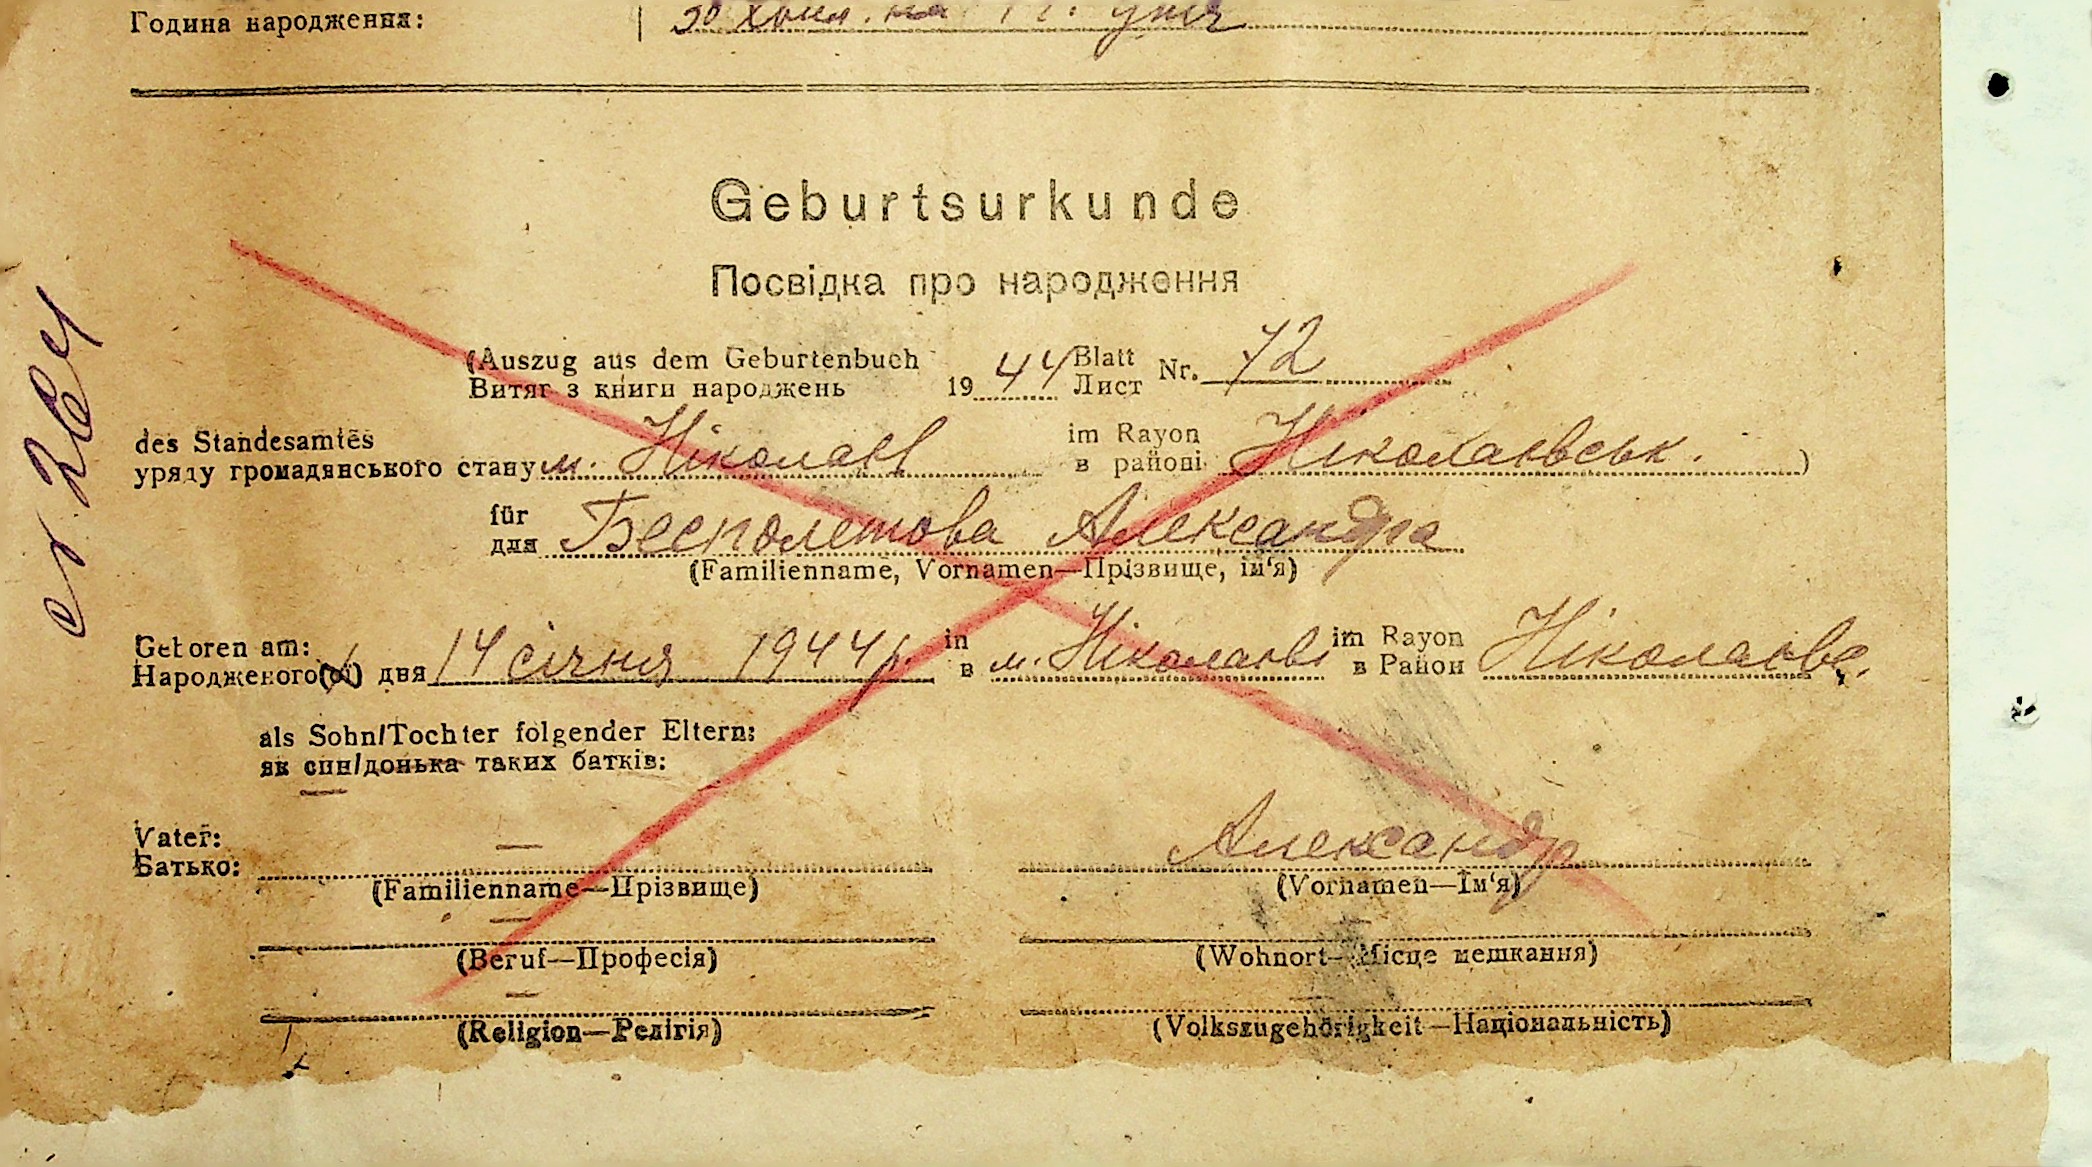 Година народження: 30 хвил. на 11 г. дня
Geburtsurkunde
Посвідка про народження
(Auszug aus dem Geburtenbuch 1944 Blatt Nr. 72
Витяг з книги народжень Лист
des Standesamtes im Rayon
уряду громадянського стану м. Ніколаєв в районі Ніколаєвськ. )
für
для Бесполетова Александра
(Familienname, Vornamen—Прізвище, ім'я)
Geboren am: in im Rayon
Народженого(ої) дня 14 січня 1944 р. в м. Ніколаєві в Район Ніколаєва.
als Sohn/Tochter folgender Eltern:
як син/донька таких батків:
Vater:
Батько: — Александр
(Familienname—Прізвище) (Vornamen—Ім'я)
—
(Beruf—Професія) (Wohnort—Місце мешкання)
—
(Religion—Релігія) (Volkszugehörigkeit—Національність)